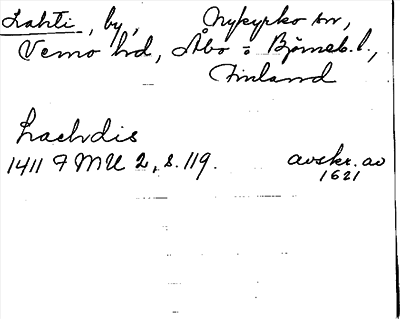 Lahti, by, Nykyrko sn,
Vemo hd, Åbo = Björneb. l.,
Finland
Lachdis
1411 FMU 2, s. 119. avskr. av
1621